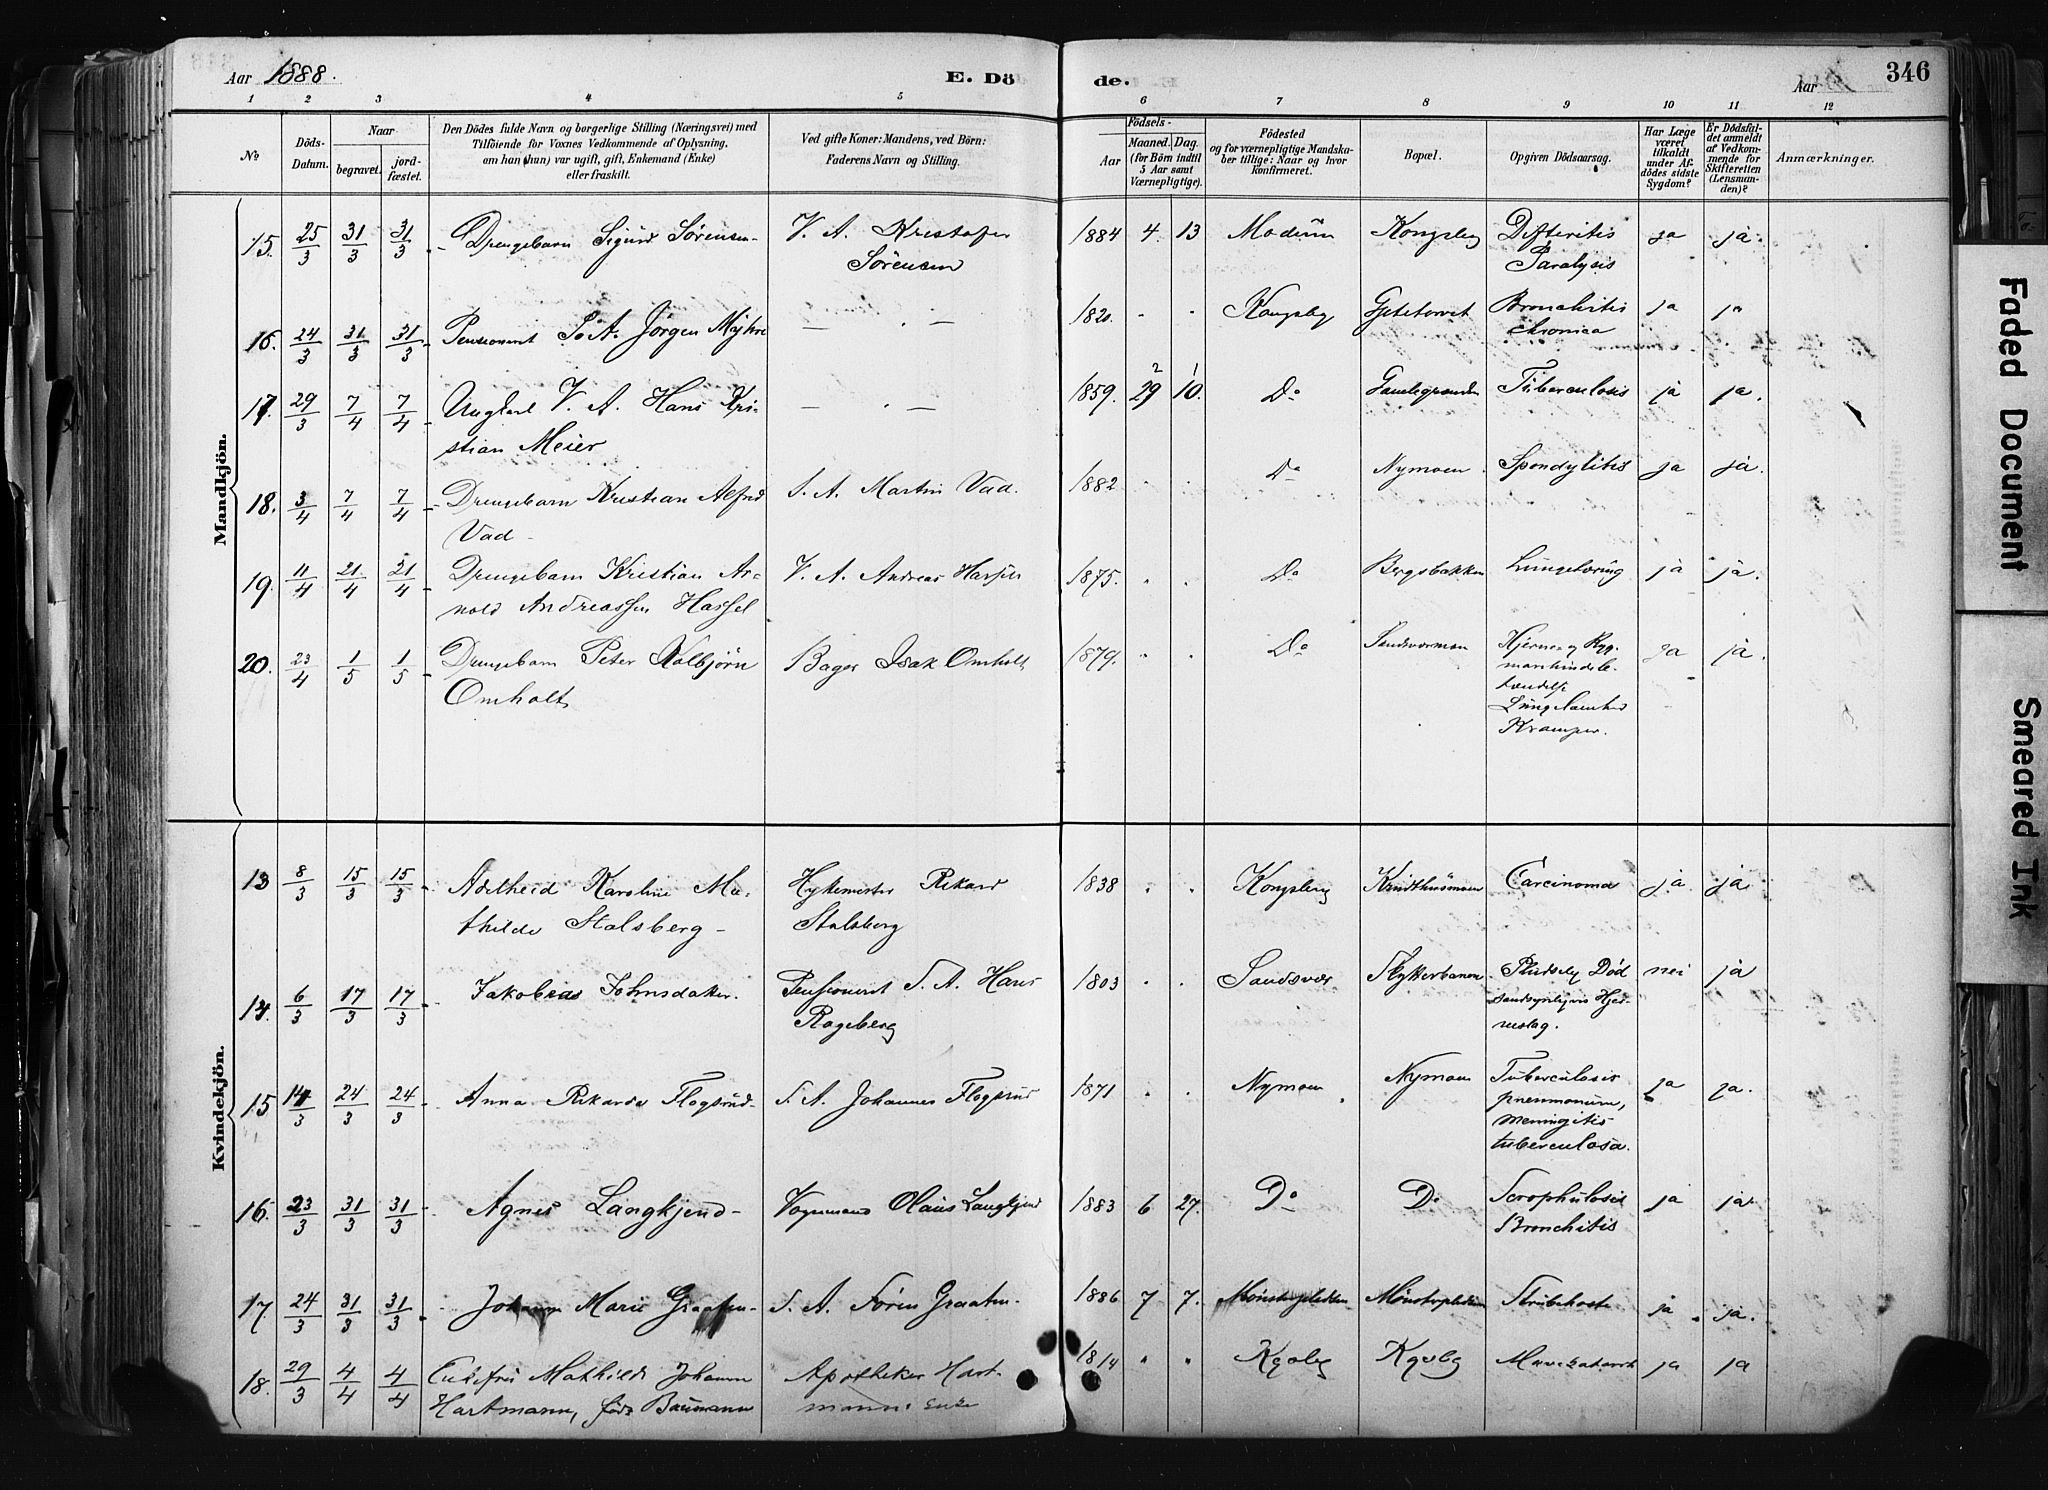 Aar 1888.
E. Dö
de.
Aar
346
1 2 3 4 5 6 7 8 9 10 11 12
No
Döds-Datum.
Naar
begravet.
jord-fæstet.
Den Dödes fulde Navn og borgerlige Stilling (Næringsvei) med
Tilföiende for Voxnes Vedkommende af Oplysning,
om han (hun) var ugift, gift, Enkemand (Enke)
eller fraskilt.
Ved gifte Koner: Mandens, ved Börn:
Faderens Navn og Stilling.
Födsels-
Aar
Maaned. Dag.
(for Börn indtil
5 Aar samt
Værnepligtige).
Födested
og for værnepligtige Mandska-
ber tillige: Naar og hvor
konfirmeret.
Bopæl.
Opgiven Dödsaarsag.
Har Læge
været
tilkaldt
under Af-
dödes sidste
Sygdom?
Er Dödsfal-
det anmeldt
af Vedkom-
mende for
Skifteretten
(Lensman-
den)?
Anmærkninger.
Mandkjön.
15. 25/3 31/3 31/3 Drengebarn Sigurd Sörensen V. A. Kristofer 1884 4 13 Modum Kongsberg Difteritis ja ja.
Sörensen Paralysis
16. 24/3 31/3 31/3 Pensioneret S. A. Jörgen Myhre — " — 182 " " Kongsberg Gytetorvet Bronchitis ja ja
chronica
17. 29/3 7/4 7/4 Ungkarl V. A. Hans Kri- — " — 1859. 2 29 1 10. Do Tuberculosis ja ja.
stian Meier
18. 3/4 7/4 7/4 Drengebarn Kristian Alfred S. A. Martin Vad. 1882 " " Do Nymoen Spondylitis ja ja.
Vad
19. 11/4 21/4 21/4 Drengebarn Kristian Ar- V. A. Andreas 1875. " " Do Bergsbakken ja ja.
nold Andreassen Hassel
20. 23/4 1/5 1/5 Drengebarn Peter Kolbjörn Bager Isak Omholt 1879. " " Do Hjerne og Ryg- ja ja.
Omholt
Kramper.
Kvindekjön.
13 8/3 15/3 15/3 Adelheid Karoline Ma- Rikard 1838 " " Kongsberg Carcinoma ja ja.
thilde Stalsberg Stalsberg
14. 6/3 17/3 17/3 Pensioneret S. A. Hans 1803 " " Sandsvær Pludselig Död nei ja
Rogeberg sandsynligvis Hjer-
neslag.
15 14/3 24/3 24/3 Anna Rikarda Flogsrud S. A. Johannes Flogsrud 1871 " " Nymoen Nymoen Tuberculosis ja ja.
pneumonum,
meningitis
tuberculosa.
16. 23/3 31/3 31/3 Agnes Langkjend Vognmand Olaus Langkjend 1883 6 27. Do Do Scrophulosis ja ja
Bronchitis
17. 24/3 31/3 31/3 Johanne Marie S. A. Sören 1886 7 7. Strubehoste ja ja.
18. 29/3 4/4 4/4 Mathilde Johanne Apotheker Hart- 1814 " " Kgsbg Kgsbg Mavekatarrh ja ja
Hartmann, född Baumann manns Enke
Faded Document
Smeared Ink